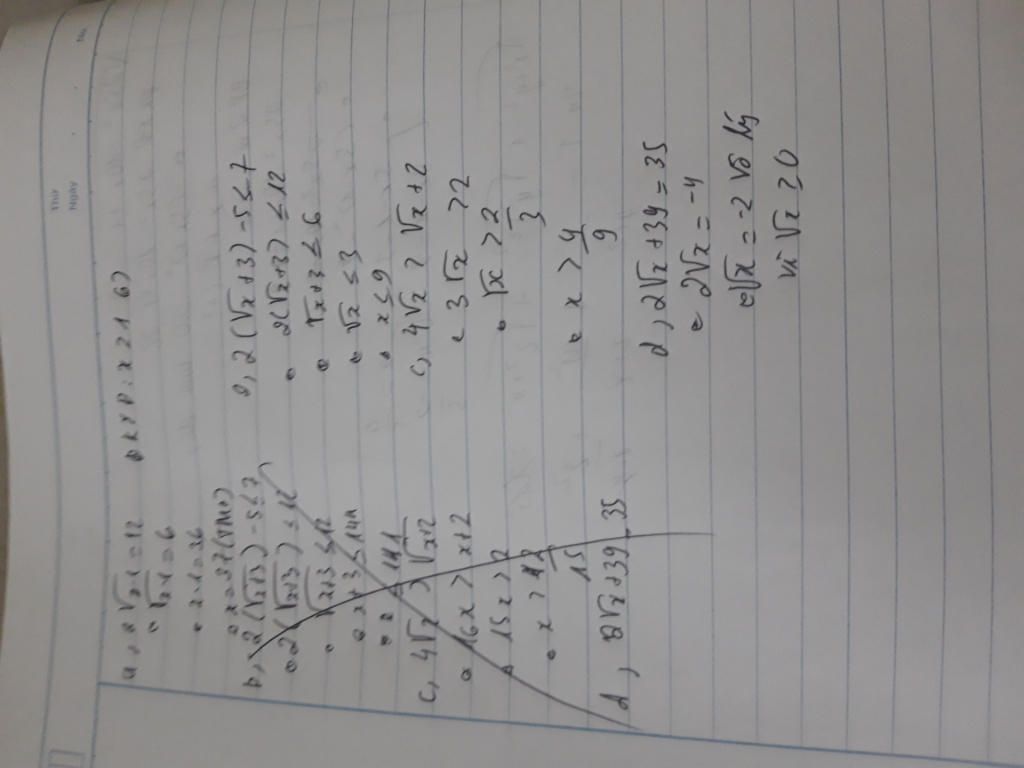 Thứ
Ngày
No.
a, 2√x-1 = 12 ĐKXĐ: x ≥ 1
√x-1 = 6
x-1 = 36
x = 37 (TM)
b, 2(√x+3) - 5 ≤ 7
2(√x+3) ≤ 12
√x+3 ≤ 12
x+3 ≤ 144
x ≤ 141
c, 4√x > √x+2
16x > x+2
15x > 2
x > 2/15
d, 2√x + 39 = 35
b, 2(√x+3) - 5 ≤ 7
2(√x+3) ≤ 12
√x+3 ≤ 6
√x ≤ 3
x ≤ 9
c, 4√x > √x+2
3√x > 2
√x > 2/3
x > 4/9
d, 2√x + 39 = 35
2√x = -4
√x = -2 vô lý
vì √x ≥ 0